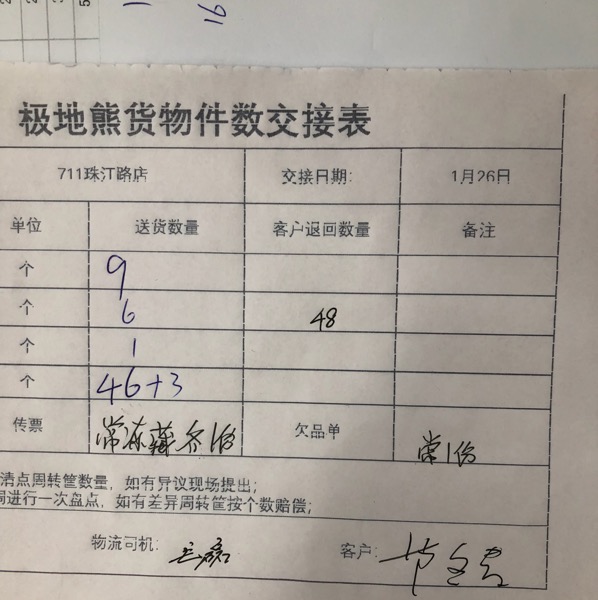 16
极地熊货物件数交接表
711珠江路店 交接日期: 1月26日
单位 送货数量 客户退回数量 备注
个 9
个 6 48
个 1
个 46+3
传票 常冻藏各1份 欠品单 常1份
清点周转筐数量，如有异议现场提出；
进行一次盘点，如有差异周转筐按个数赔偿；
物流司机: 客户: